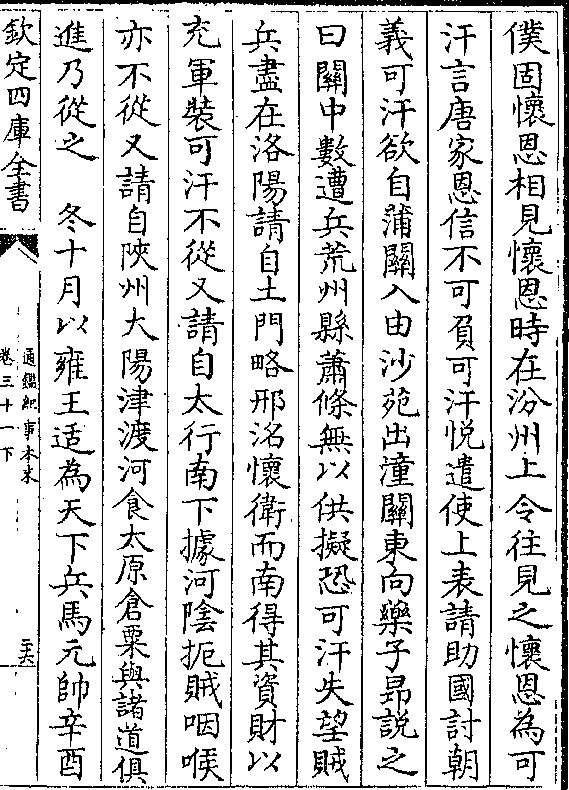 僕固懷恩相見懷恩時在汾州上令往見之懷恩為可
汗言唐家恩信不可負可汗悅遣使上表請助國討朝
義可汗欲自蒲關入由沙苑出潼關東向藥子昻說之
曰關中數遭兵荒州縣蕭條無以供擬恐可汗失望賊
兵盡在洛陽請自土門略邢洺懷衛而南得其資財以
充軍裝可汗不從又請自太行南下據河陰扼賊咽喉
亦不從又請自陜州大陽津渡河食太原倉粟與諸道俱
進乃從之　冬十月以雍王适為天下兵馬元帥辛酉
欽定四庫全書
通鑑紀事本末
卷三十一下
三六